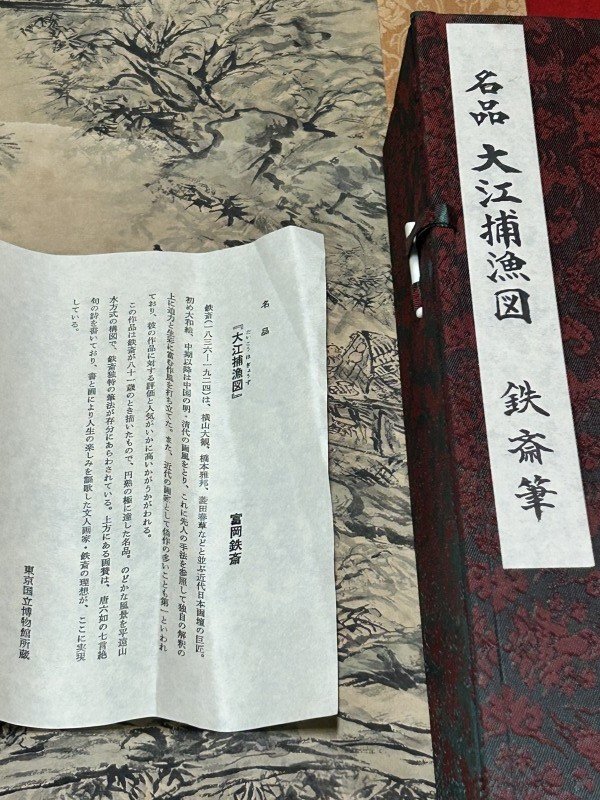 名品 大江捕漁図 鉄斎筆
名品
『大江捕漁図』
だいこうほぎょうず
富岡鉄斎
鉄斎(一八三六―一九二四)は、横山大観、橋本雅邦、菱田春草などと並ぶ近代日本画壇の巨匠。
初め大和絵、中期以降は中国の明・清代の画風をとり、これに先人の手法を参照して独自の解釈の
上に迫力と生彩に富む作風を打ち立てた。また、近代の画匠として偽作の多いことも第一といわれ
ており、彼の作品に対する評価と人気がいかに高いかがうかがわれる。
この作品は鉄斎が八十一歳のとき描いたもので、円熟の極に達した名品。のどかな風景を平遠山
水方式の構図で、鉄斎独特の筆法が存分にあらわされている。上方にある画賛は、唐六如の七言絶
句の詩を書いており、書と画により人生の楽しみを謳歌した文人画家・鉄斎の理想が、ここに実現
している。
東京国立博物館所蔵